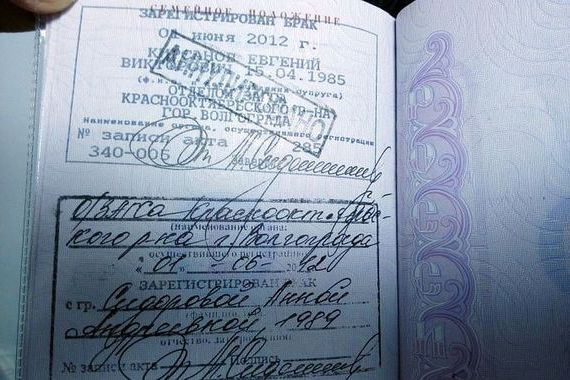 СЕМЕЙНОЕ ПОЛОЖЕНИЕ
ЗАРЕГИСТРИРОВАН БРАК
01 июня 2012 г.
ЕВГЕНИЙ
15.04.1985
ОТДЕЛОМ ЗАГСА
КРАСНООКТЯБРЬСКОГО Р-НА
ГОР. ВОЛГОГРАДА
наименование органа, осуществившего регистрации
№ записи акта 285
340-006
О/ЗАГСа Краснооктябрьс-
кого р-на г. Волгограда
(наименование органа:
осуществившего регистрацию)
"01" - 06 - 2012
ЗАРЕГИСТРИРОВАН БРАК
с гр. Сидоровой Анной
Андреевной, 1989
отчество, дата
№ записи акта Подпись